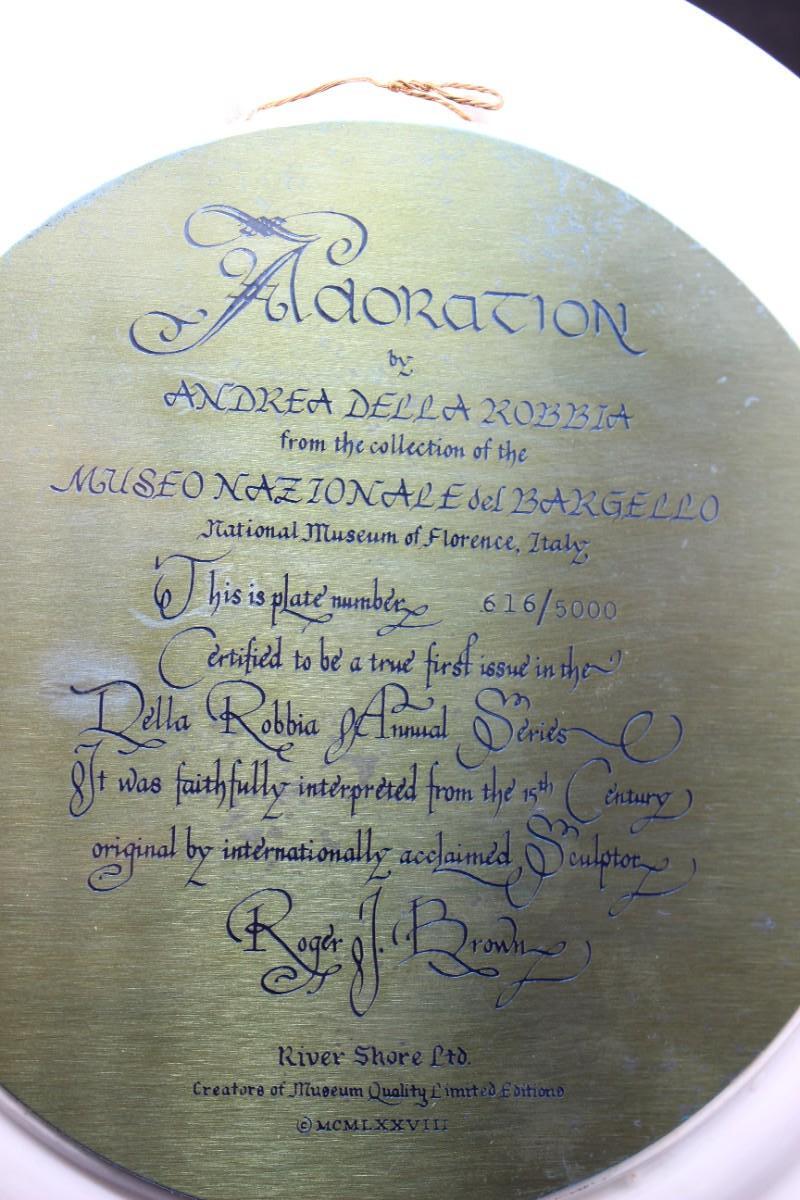 Adoration
by
ANDREA DELLA ROBBIA
from the collection of the
MUSEO NAZIONALE del BARGELLO
National Museum of Florence, Italy
This is plate number 616/5000
Certified to be a true first issue in the
Della Robbia Annual Series
It was faithfully interpreted from the 15th Century
original by internationally acclaimed Sculptor
Roger J. Brown
River Shore Ltd.
Creators of Museum Quality Limited Editions
© MCMLXXVIII